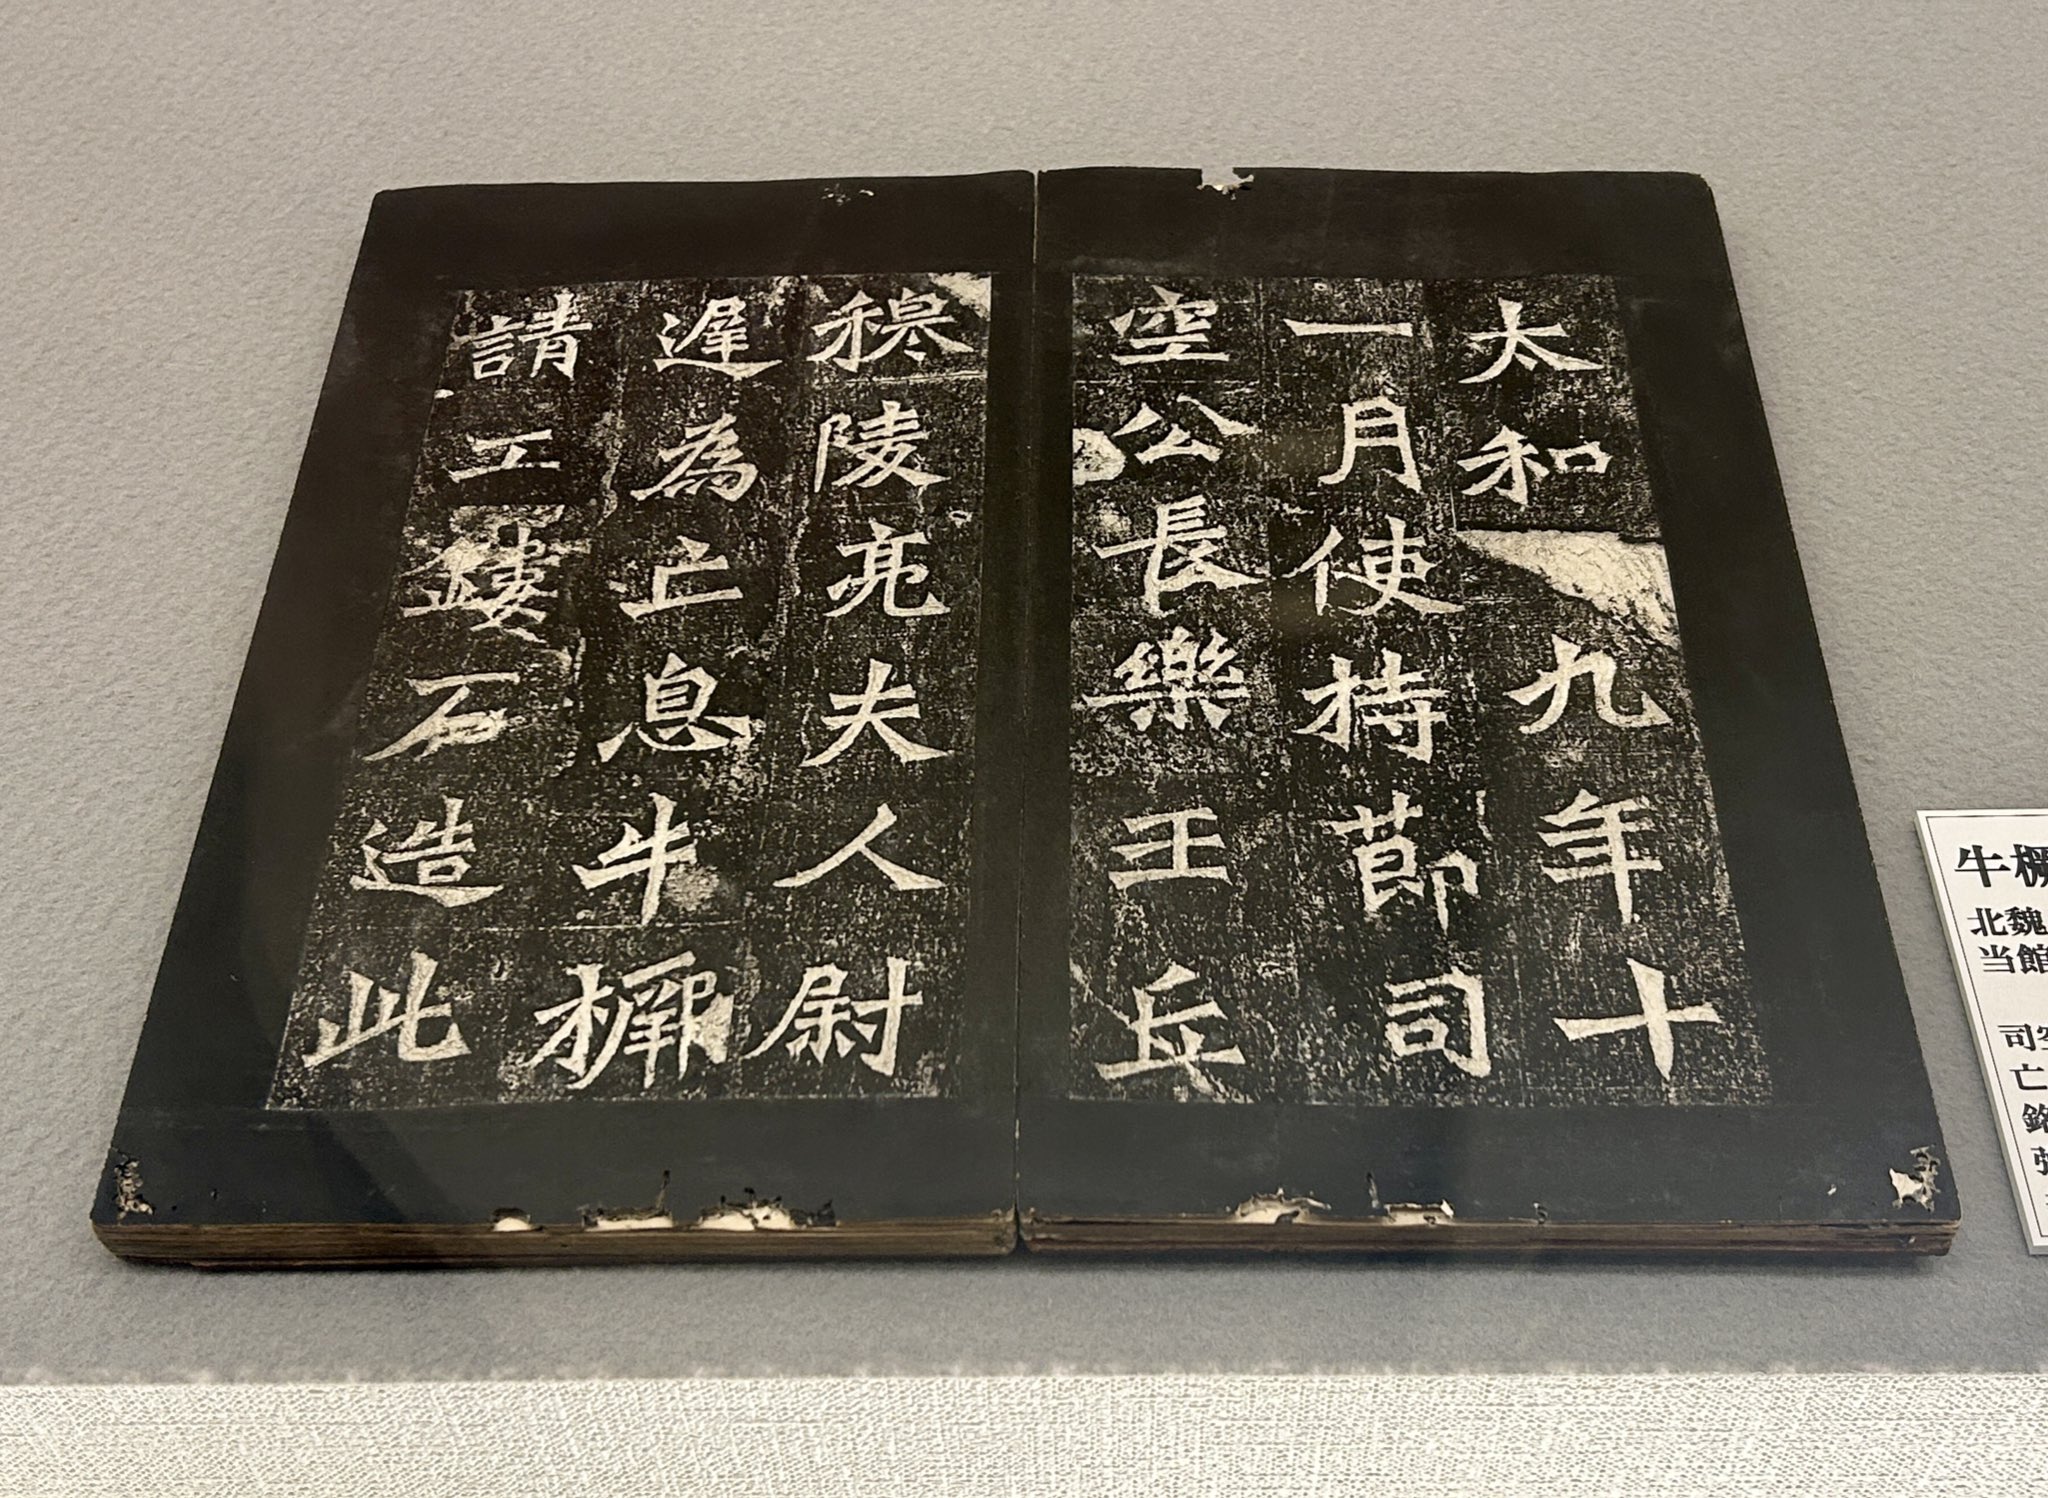 太和九年十
一月使持節司
空公長樂王丘
穆陵亮夫人尉
遲為亡息牛橛
請工鏤石造此
牛橛
北魏
当館
司空
亡
銘